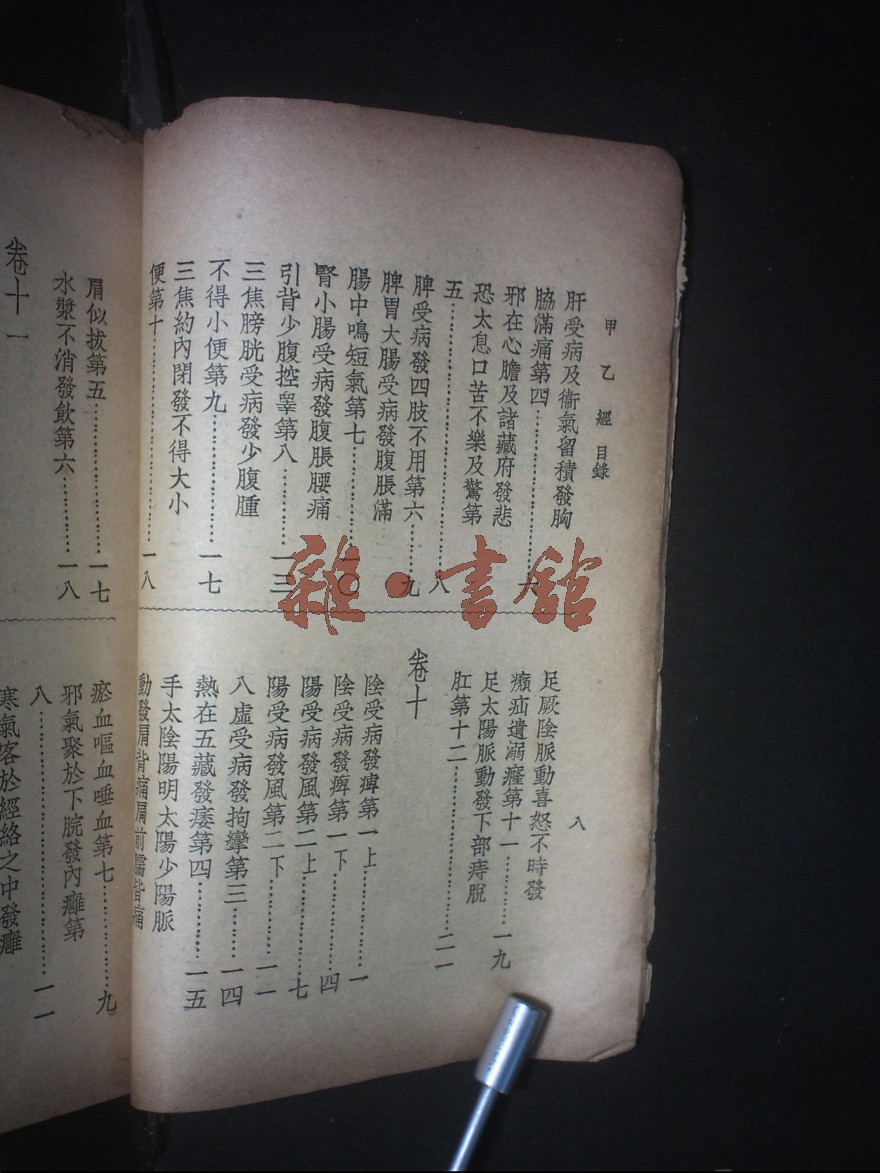 甲乙經 目錄
八
肝受病及衞氣留積發胸
脇滿痛第四……六
邪在心膽及諸藏府發悲
恐太息口苦不樂及驚第
五……八
脾受病發四肢不用第六……九
脾胃大腸受病發腹脹滿
腸中鳴短氣第七……一〇
腎小腸受病發腹脹腰痛
引背少腹控睾第八……一三
三焦膀胱受病發少腹腫
不得小便第九……一七
三焦約內閉發不得大小
便第十……一八
足厥陰脈動喜怒不時發
㿗疝遺溺癃第十一……一九
足太陽脈動發下部痔脫
肛第十二……二一
卷十
陰受病發痺第一上……一
陰受病發痺第一下……四
陽受病發風第二上……七
陽受病發風第二下……一一
八虛受病發拘攣第三……一四
熱在五藏發痿第四……一五
手太陰陽明太陽少陽脈
動發肩背痛肩前臑皆痛
肩似拔第五……一七
水漿不消發飲第六……一八
卷十一
瘀血嘔血唾血第七……九
邪氣聚於下脘發內癰第
八……一一
寒氣客於經絡之中發癰
雜·書館